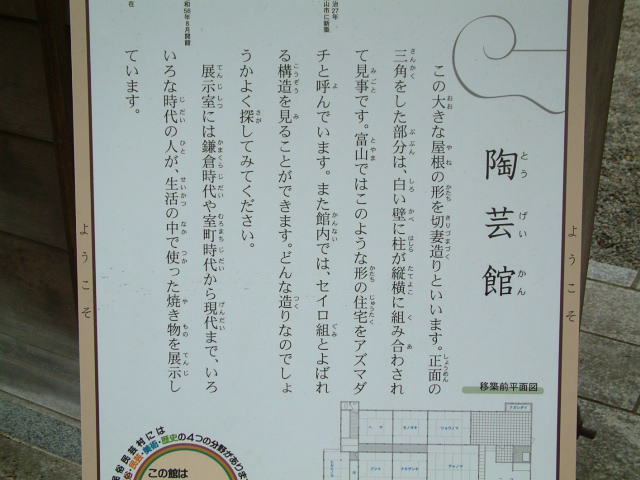 陶芸館
とうげいかん
この大きな屋根の形を切妻造りといいます。正面の
三角をした部分は、白い壁に柱が縦横に組み合わされ
て見事です。富山ではこのような形の住宅をアズマダ
チと呼んでいます。また館内では、セイロ組とよばれ
る構造を見ることができます。どんな造りなのでしょ
うかよく探してみてください。
展示室には鎌倉時代や室町時代から現代まで、いろ
いろな時代の人が、生活の中で使った焼き物を展示し
ています。
ようこそ
ようこそ
治27年
山市に新築
和56年8月開館
在
移築前平面図
俗民芸村には
民俗・民芸・美術・歴史の4つの分野がありま
この館は